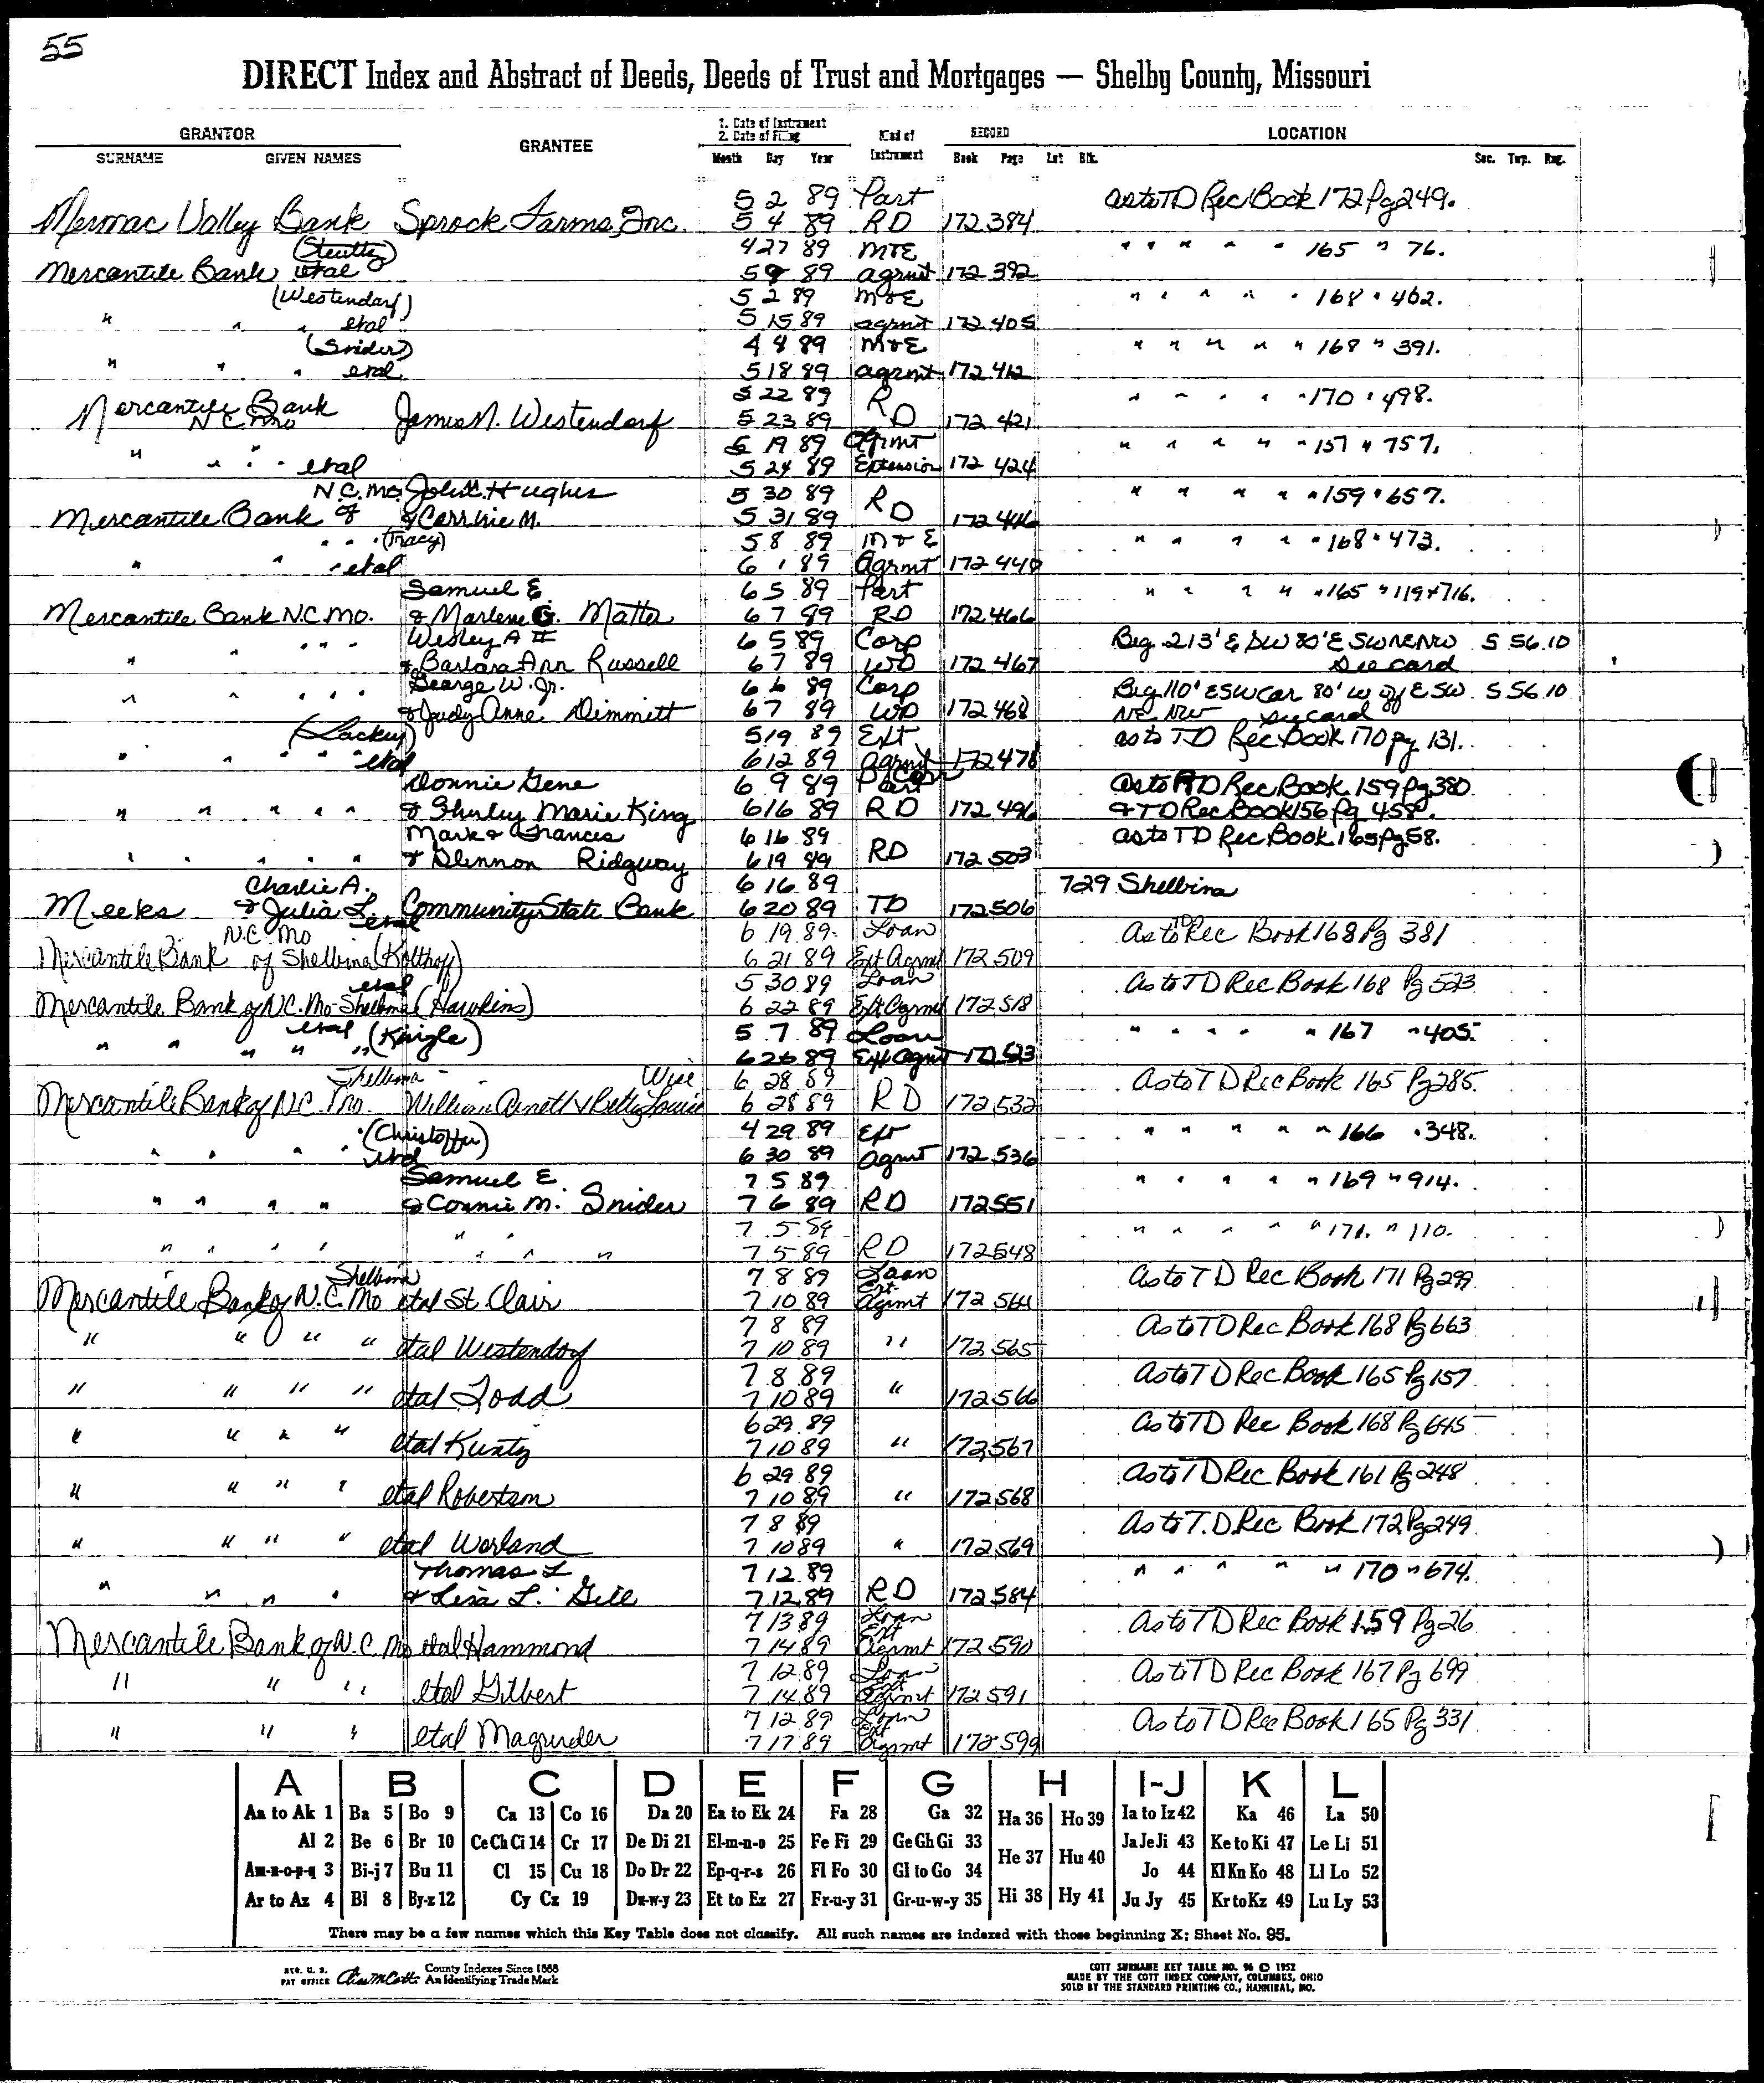 55
DIRECT Index and Abstract of Deeds, Deeds of Trust and Mortgages — Shelby County, Missouri
GRANTOR GRANTEE 1. Date of Instrument 2. Date of Filing Kind of Instrument RECORD LOCATION
SURNAME GIVEN NAMES Month Day Year Book Page Lot Blk. Sec. Twp. Rng.
5 2 89 Part as to TD Rec Book 172 Pg 249.
Mermac Valley Bank Sprock Farms, Inc. 5 4 89 RD 172 384
(Steutte) 4 27 89 M+E " " " " " 165 " 76.
Mercantile Bank etal 5 9 89 agrmt 172 392
(Westendorf) 5 2 89 M+E " " " " " 168 " 462.
" " " etal 5 15 89 agrmt 172 405
(Snider) 4 8 89 M+E " " " " " 168 " 391.
" " " etal 5 18 89 agrmt 172 412
Mercantile Bank 5 22 89 R " " " " " 170 " 498.
N C Mo James N. Westendorf 5 23 89 D 172 421
5 19 89 Agrmt " " " " " 157 " 757.
" " " " etal 5 24 89 Extension 172 424
N.C. Mo. John C. Hughes 5 30 89 R " " " " " 159 " 657.
Mercantile Bank of & Corrhie M. 5 31 89 D 172 446
" " " (Tracy) 5 8 89 M + E " " " " " 168 " 473.
" " " etal 6 1 89 Agrmt 172 448
Samuel E. 6 5 89 Part " " " " " 165 " 119 + 716.
Mercantile Bank N.C. Mo. & Marlene G. Matter 6 7 89 RD 172 466
Wesley A II 6 5 89 Corp Beg 213' E SW 80' E SW NE NW S 56.10
" " " " " & Barbara Ann Russell 6 7 89 WD 172 467 See card
George W. Jr. 6 6 89 Corp Beg 110' E SW Cor 80' W of E SW S 56.10
" " " " " & Judy Anne Dimmitt 6 7 89 WD 172 468 NE NW See card
(Lackey) 5 19 89 Ext as to TD Rec Book 170 pg 131.
" " " " " etal 6 12 89 Agrmt 172 478
Donnie Gene 6 9 89 Part Corr As to TD Rec Book 159 Pg 380
" " " " " & Shirley Marie King 6 16 89 RD 172 496 & TD Rec Book 156 Pg 458.
Mark & Frances 6 16 89 RD as to TD Rec Book 165 Pg 58.
" " " " " & Dlennon Ridgway 6 19 89 172 503
Charlie A. 6 16 89 729 Shelbina
Meeks & Julia L. Community State Bank 6 20 89 TD 172 506
N.C. Mo etal 6 19 89 Loan As to TD Rec Book 168 Pg 381
Mercantile Bank of Shelbina (Kolthoff) 6 21 89 Ext Agrmt 172 509
etal 5 30 89 Loan As to TD Rec Book 168 Pg 523
Mercantile Bank of N.C. Mo-Shelbina (Hawkins) 6 22 89 Ext Agrmt 172 518
etal 5 7 89 Loan " " " " " 167 " 405.
" " " " " (Kingle) 6 26 89 Ext Agmt 172 523
Shelbina Wise 6 28 89 As to TD Rec Book 165 Pg 285.
Mercantile Bank of N.C. Mo. William Arnett & Betty Louise 6 28 89 RD 172 532
(Christoffer) 4 29 89 Ext " " " " " 166 " 348.
" " " " etal 6 30 89 Agmt 172 536
Samuel E. 7 5 89 " " " " " 169 " 914.
" " " " & Connie M. Snider 7 6 89 RD 172 551
" " 7 5 89 " " " " " 171 " 110.
" " " " " " " 7 5 89 RD 172 548
Shelbina 7 8 89 Loan As to TD Rec Book 171 Pg 299
Mercantile Bank of N.C. Mo etal St. Clair 7 10 89 Ext. Agrmt 172 564
7 8 89 As to TD Rec Book 168 Pg 663
" " " " etal Westendorf 7 10 89 " 172 565
7 8 89 As to TD Rec Book 165 Pg 157
" " " " etal Todd 7 10 89 " 172 566
6 29 89 As to TD Rec Book 168 Pg 645
" " " " etal Kuntz 7 10 89 " 172 567
6 29 89 As to TD Rec Book 161 Pg 248
" " " " etal Robertson 7 10 89 " 172 568
7 8 89 As to T.D. Rec Book 172 Pg 249
" " " " etal Worland 7 10 89 " 172 569
Thomas L 7 12 89 " " " " " 170 " 674.
" " " " & Lisa L. Gill 7 12 89 RD 172 584
7 13 89 Loan Ext As to TD Rec Book 159 Pg 26
Mercantile Bank of N.C. Mo etal Hammond 7 14 89 Agrmt 172 590
7 12 89 Loan Ext As to TD Rec Book 167 Pg 699
" " " etal Gilbert 7 14 89 Agrmt 172 591
7 12 89 Loan Ext As to TD Rec Book 165 Pg 331
" " " etal Magruder 7 17 89 Agrmt 172 599
A B C D E F G H I-J K L
Aa to Ak 1 Ba 5 Bo 9 Ca 13 Co 16 Da 20 Ea to Ek 24 Fa 28 Ga 32 Ha 36 Ho 39 Ia to Iz 42 Ka 46 La 50
Al 2 Be 6 Br 10 Ce Ch Ci 14 Cr 17 De Di 21 El-m-n-o 25 Fe Fi 29 Ge Gh Gi 33 He 37 Hu 40 Ja Je Ji 43 Ke to Ki 47 Le Li 51
Am-n-o-p-q 3 Bi-j 7 Bu 11 Cl 15 Cu 18 Do Dr 22 Ep-q-r-s 26 Fl Fo 30 Gl to Go 34 Jo 44 Kl Kn Ko 48 Ll Lo 52
Ar to Az 4 Bl 8 By-z 12 Cy Cz 19 Du-w-y 23 Et to Ez 27 Fr-u-y 31 Gr-u-w-y 35 Hi 38 Hy 41 Ju Jy 45 Kr to Kz 49 Lu Ly 53
There may be a few names which this Key Table does not classify. All such names are indexed with those beginning X; Sheet No. 95.
REG. U. S. PAT OFFICE County Indexes Since 1888 An Identifying Trade Mark
COTT SURNAME KEY TABLE NO. 96 © 1952
MADE BY THE COTT INDEX COMPANY, COLUMBUS, OHIO
SOLD BY THE STANDARD PRINTING CO., HANNIBAL, MO.